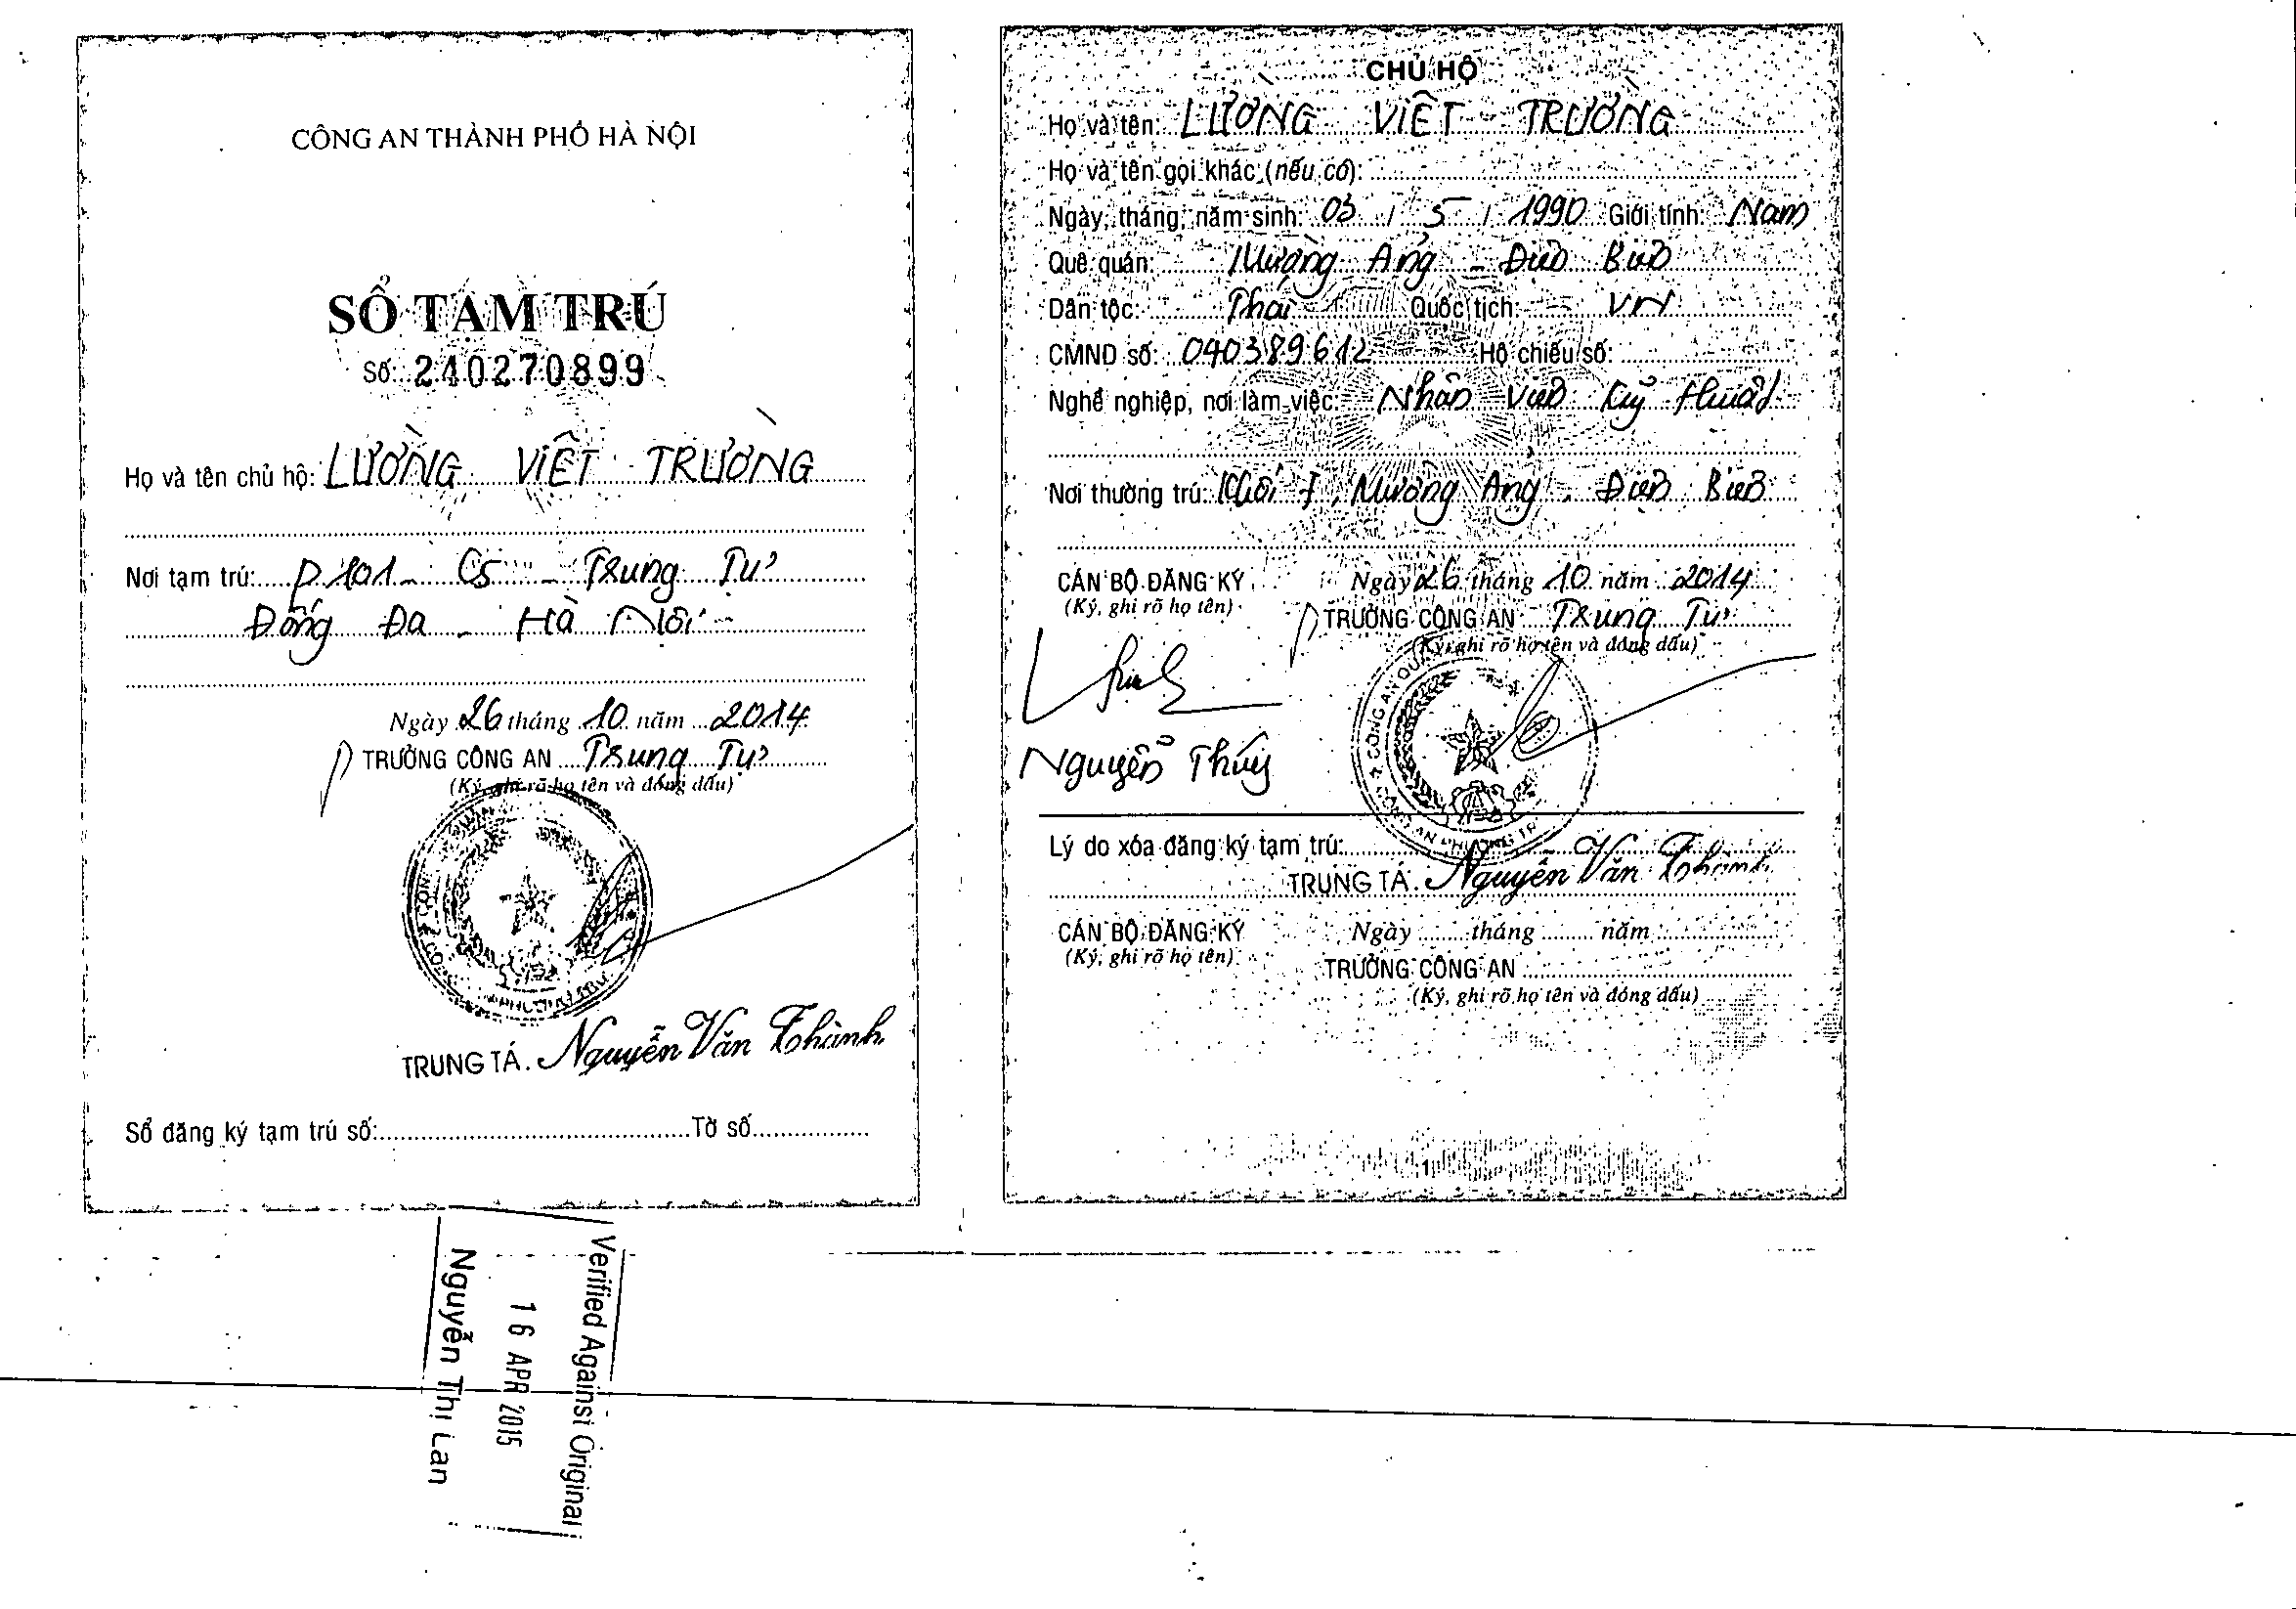 CÔNG AN THÀNH PHỐ HÀ NỘI
SỔ TẠM TRÚ
Số: 240270899
Họ và tên chủ hộ: LƯỜNG VIẾT TRƯỜNG
Nơi tạm trú: P101 - C5 - Trung Tự
Đống Đa - Hà Nội -
Ngày 26 tháng 10 năm 2014
TRƯỞNG CÔNG AN Trung Tự
(Ký, ghi rõ họ tên và đóng dấu)
TRUNG TÁ. Nguyễn Văn Thành
Sổ đăng ký tạm trú số: Tờ số
CHỦ HỘ
Họ và tên: LƯỜNG VIẾT TRƯỜNG
Họ và tên gọi khác (nếu có):
Ngày, tháng, năm sinh: 03 / 5 / 1990 Giới tính: Nam
Quê quán: Mường Ảng - Điện Biên
Dân tộc: Thái Quốc tịch: VN
CMND số: 040389612 Hộ chiếu số:
Nghề nghiệp, nơi làm việc: Nhân viên kỹ thuật
Nơi thường trú: Khối I, Mường Ảng, Điện Biên
CÁN BỘ ĐĂNG KÝ Ngày 26 tháng 10 năm 2014
(Ký, ghi rõ họ tên) TRƯỞNG CÔNG AN Trung Tự
(Ký, ghi rõ họ tên và đóng dấu)
Nguyễn Thúy
Lý do xóa đăng ký tạm trú:
TRUNG TÁ. Nguyễn Văn Thành
CÁN BỘ ĐĂNG KÝ Ngày tháng năm
(Ký, ghi rõ họ tên) TRƯỞNG CÔNG AN
(Ký, ghi rõ họ tên và đóng dấu)
1
Verified Against Original
16 APR 2015
Nguyễn Thị Lan